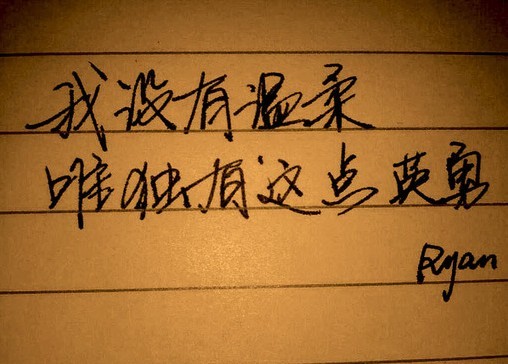 我没有温柔
唯独有这点英勇
Ryan